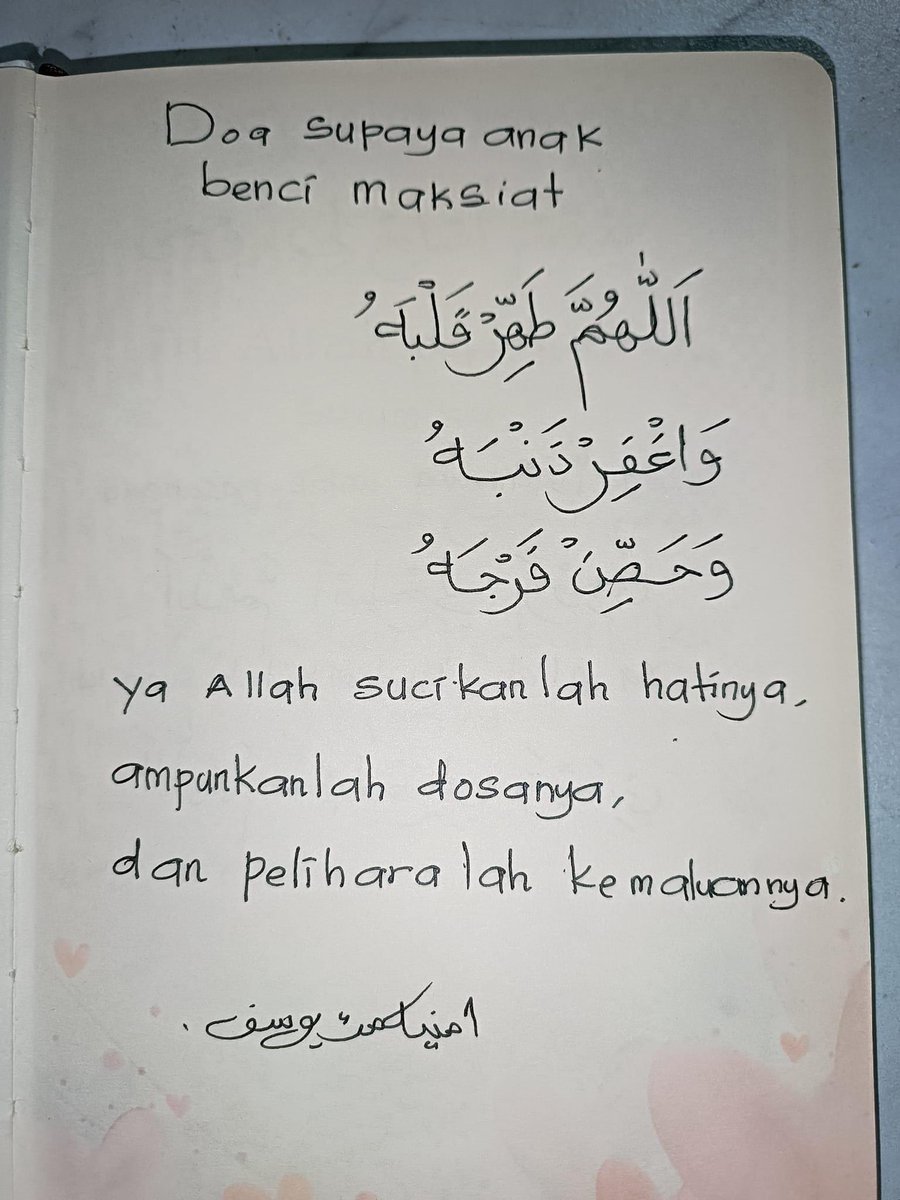 Doa supaya anak
benci maksiat
اَللّٰهُمَّ طَهِّرْ قَلْبَهُ
وَاغْفِرْ ذَنْبَهُ
وَحَصِّنْ فَرْجَهُ
ya Allah sucikanlah hatinya,
ampunkanlah dosanya,
dan peliharalah kemaluannya.
يوسف